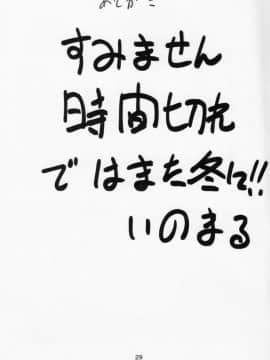 あとがき
すみません
時間切れ
ではまた冬に!!
いのまる
29